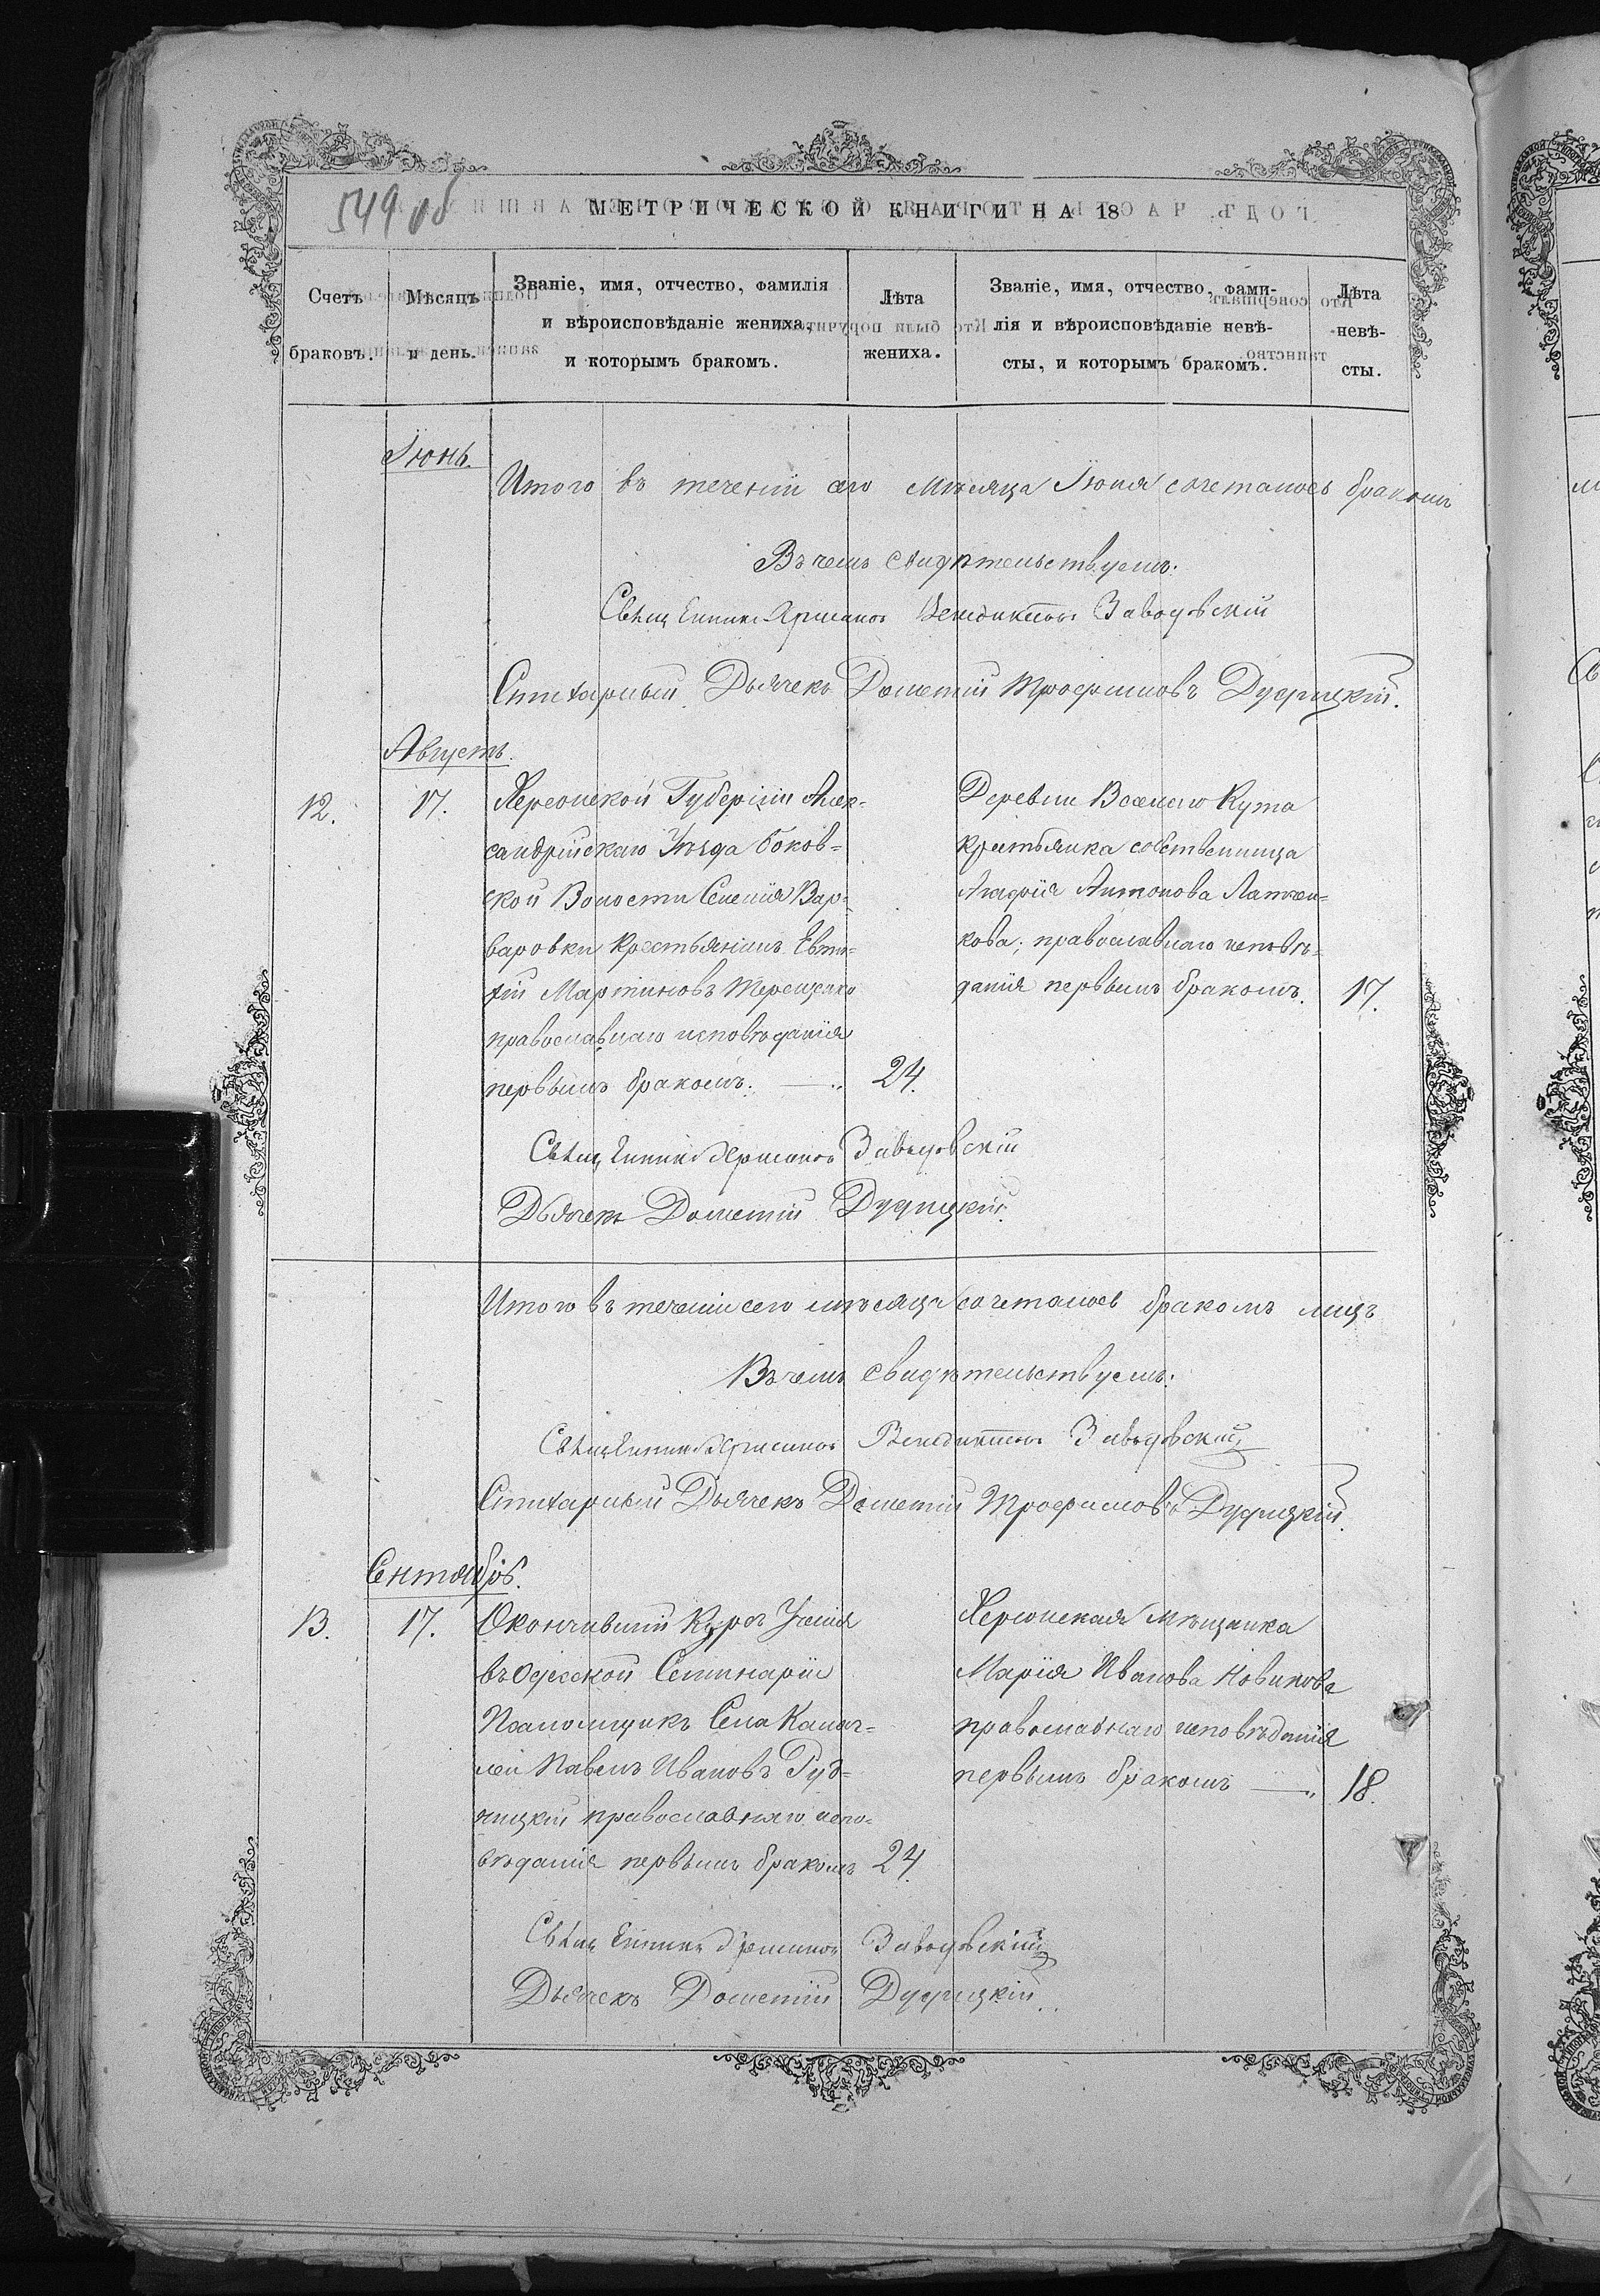 549 об
МЕТРИЧЕСКОЙ КНИГИ НА 18
Счетъ браковъ.
Мѣсяцъ и день.
Званіе, имя, отчество, фамилія
и вѣроисповѣданіе жениха,
и которымъ бракомъ.
Лѣта
жениха.
Званіе, имя, отчество, фами-
лія и вѣроисповѣданіе невѣ-
сты, и которымъ бракомъ.
Лѣта
невѣ-
сты.
Іюнь.
Итого въ теченіи сего мѣсяца Іюня сочеталось бракомъ
Въ чемъ свидѣтельствуемъ:
Свящ Венедиктовъ Заводовскій
Дьячекъ Дометій Трофимовъ Дудицкій.
Августъ.
12.
17.
Херсонской Губерніи Алек-
сандрійскаго Уѣзда Боков-
ской Волости Селенія Вар-
варовки крестьянинъ Евти-
хій Мартиновъ Терещенко
православнаго исповѣданія
первымъ бракомъ.
24.
Деревни Кута
крестьянка собственница
Агафія Антонова
кова, православнаго исповѣ-
данія первымъ бракомъ.
17.
Свящ Заводовскій
Дьячекъ Дометій Дудицкій.
Итого въ теченіи сего мѣсяца сочеталось бракомъ лицъ
Въ чемъ свидѣтельствуемъ:
Свящ Венедиктовъ Заводовскій
Дьячекъ Дометій Трофимовъ Дудицкій.
Сентябрь.
13.
17.
Окончившій Курсъ Ученія
въ Одесской Семинаріи
Псаломщикъ Села
Павелъ Ивановъ Руд-
ницкій православнаго испо-
вѣданія первымъ бракомъ
24.
Херсонская мѣщанка
Марія Иванова Новикова
православнаго исповѣданія
первымъ бракомъ
18.
Свящ Заводовскій
Дьячекъ Дометій Дудицкій.